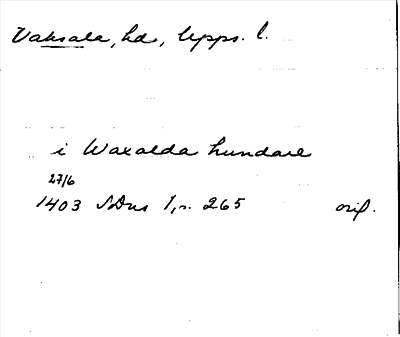 Vaksala, hd, Upps. l.
i Waxalda hundare
27/6
1403 SDns 1, s. 265 orig.